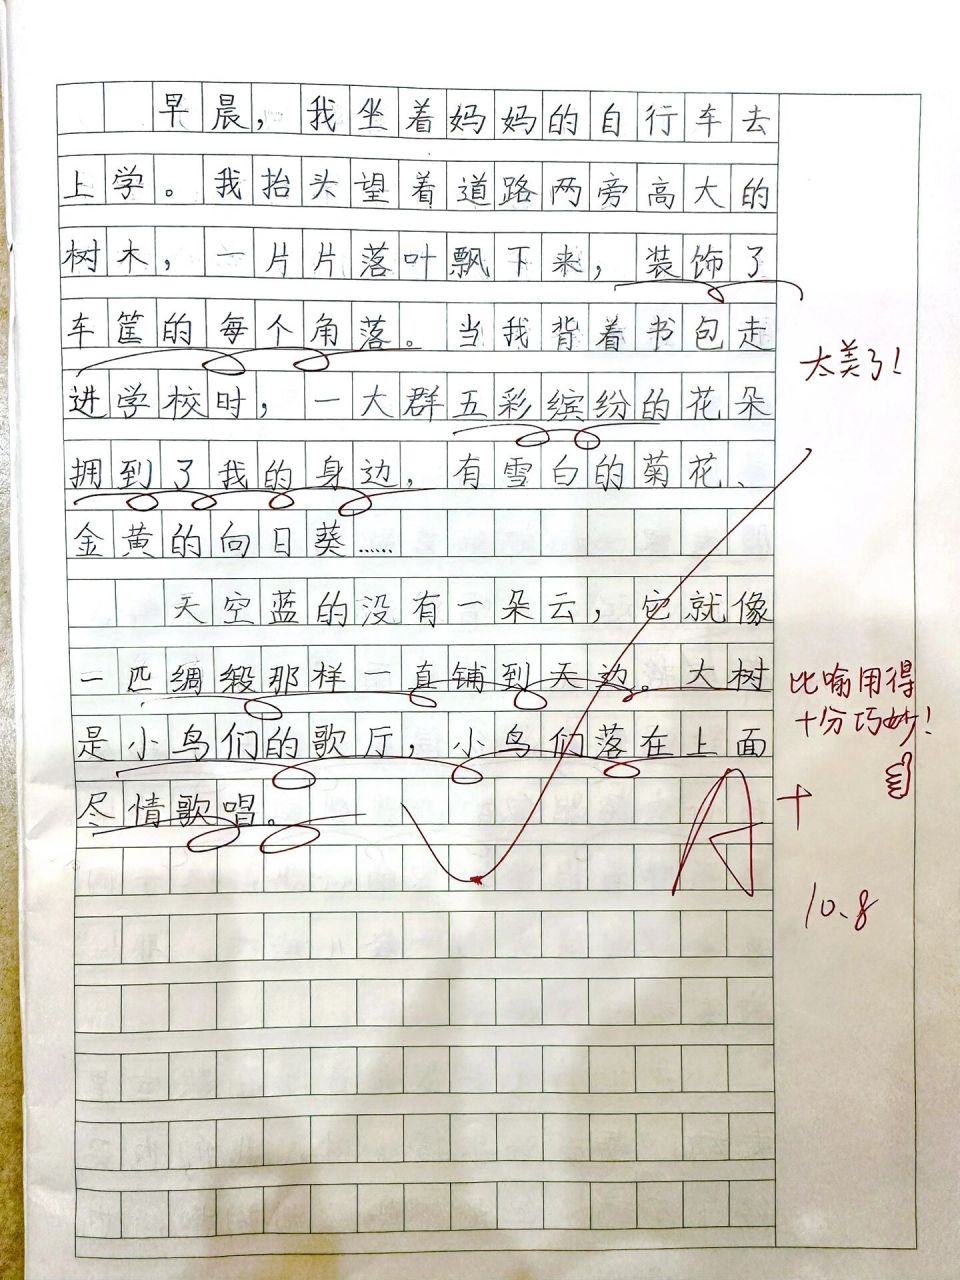 早晨，我坐着妈妈的自行车去
上学。我抬头望着道路两旁高大的
树木，一片片落叶飘下来，装饰了
车筐的每个角落。当我背着书包走
太美了！
进学校时，一大群五彩缤纷的花朵
拥到了我的身边，有雪白的菊花、
金黄的向日葵……
天空蓝的没有一朵云，它就像
一匹绸缎那样一直铺到天边。大树
比喻用得
十分巧妙！
是小鸟们的歌厅，小鸟们落在上面
尽情歌唱。
A+
10.8